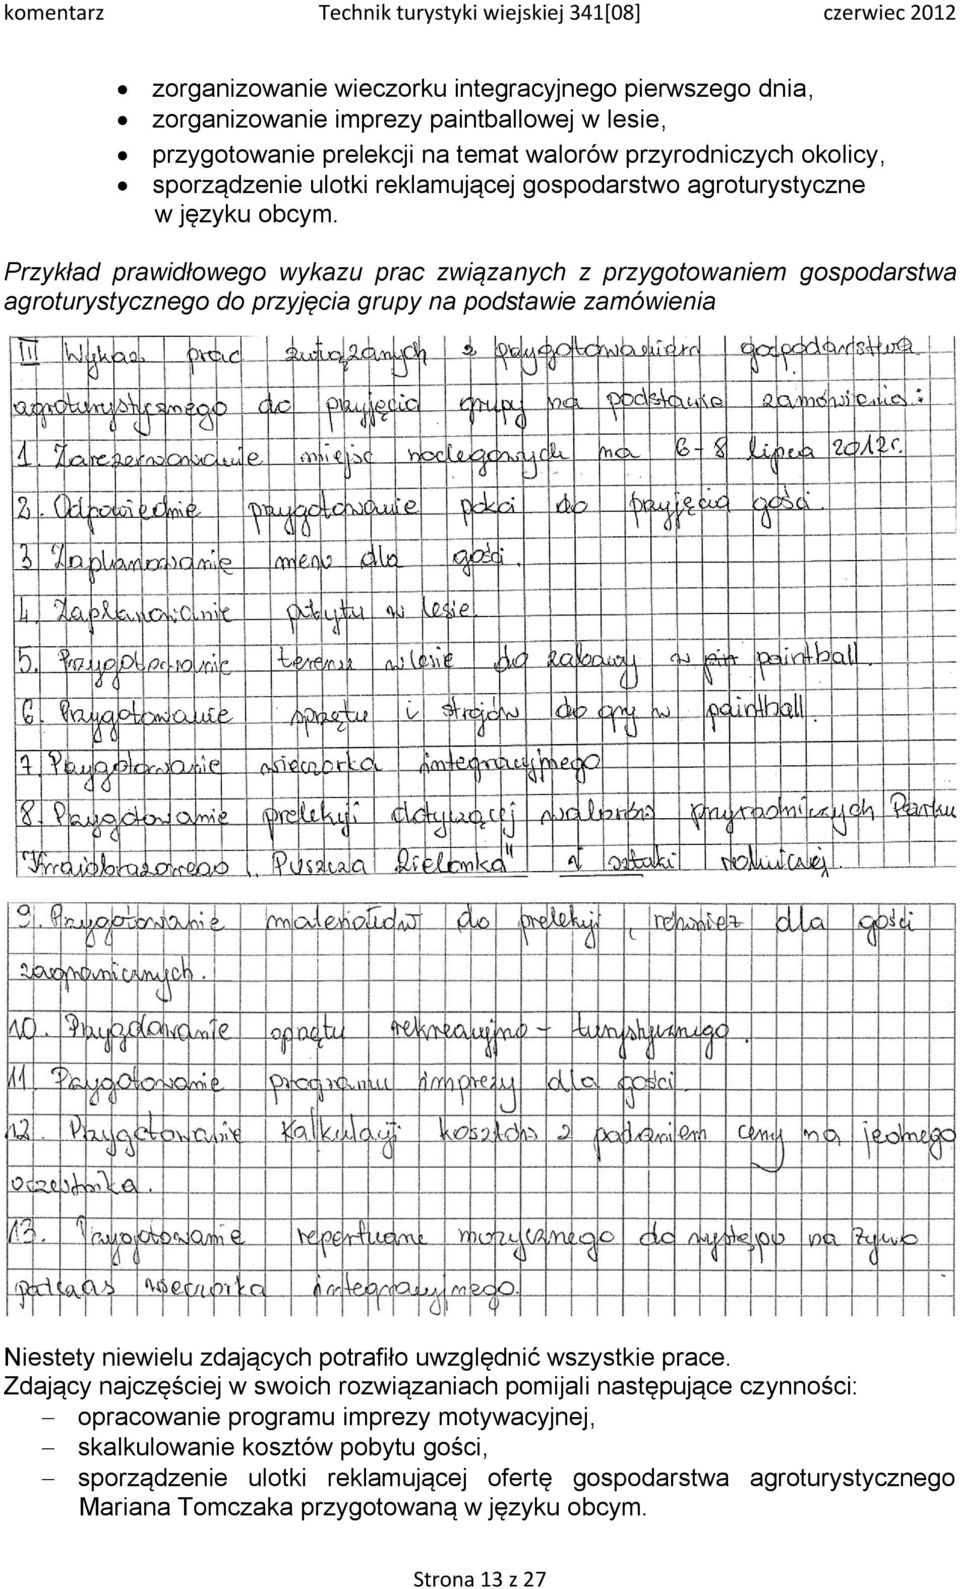 komentarz Technik turystyki wiejskiej 341[08] czerwiec 2012
• zorganizowanie wieczorku integracyjnego pierwszego dnia,
• zorganizowanie imprezy paintballowej w lesie,
• przygotowanie prelekcji na temat walorów przyrodniczych okolicy,
• sporządzenie ulotki reklamującej gospodarstwo agroturystyczne
w języku obcym.
Przykład prawidłowego wykazu prac związanych z przygotowaniem gospodarstwa
agroturystycznego do przyjęcia grupy na podstawie zamówienia
III Wykaz prac związanych z przygotowaniem gospodarstwa
agroturystycznego do przyjęcia grupy na podstawie zamówienia:
1. Zarezerwowanie miejsc noclegowych na 6-8 lipca 2012r.
2. Odpowiednie przygotowanie pokoi do przyjęcia gości.
3. Zaplanowanie menu dla gości.
4. Zaplanowanie pobytu w lesie.
5. Przygotowanie terenu w lesie do zabawy w paintball.
6. Przygotowanie sprzętu i strojów do gry w paintball.
7. Przygotowanie wieczorka integracyjnego
8. Przygotowanie prelekcji dotyczącej walorów przyrodniczych Parku
Krajobrazowego "Puszcza Zielonka" i sztuki
9. Przygotowanie materiałów do prelekcji, również dla gości
zagranicznych.
10. sprzętu rekreacyjno-turystycznego.
11. Przygotowanie programu imprezy dla gości.
12. Przygotowanie kalkulacji kosztów z podaniem ceny na jednego
uczestnika.
13. Przygotowanie repertuaru muzycznego do występu na żywo
podczas wieczorka integracyjnego.
Niestety niewielu zdających potrafiło uwzględnić wszystkie prace.
Zdający najczęściej w swoich rozwiązaniach pomijali następujące czynności:
– opracowanie programu imprezy motywacyjnej,
– skalkulowanie kosztów pobytu gości,
– sporządzenie ulotki reklamującej ofertę gospodarstwa agroturystycznego
Mariana Tomczaka przygotowaną w języku obcym.
Strona 13 z 27